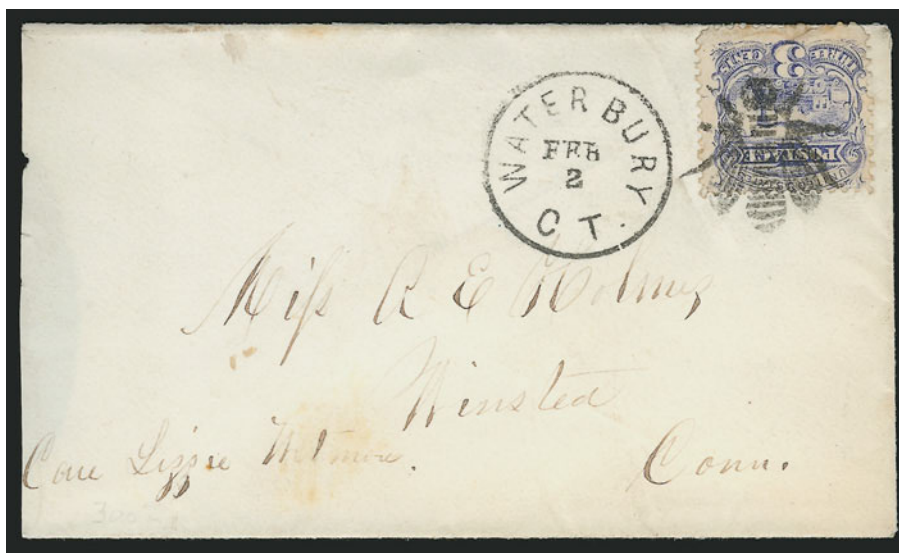 WATERBURY
FEB
2
CT.
3
POSTAGE
Miſs R E Holmes
Winsted
Care Lizzie
Conn.